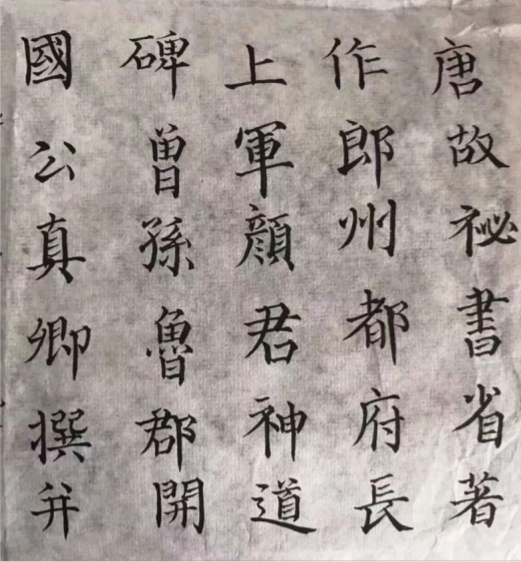 唐故祕書省著
作郎州都府長
上軍顔君神道
碑曽孫魯郡開
國公真卿撰并